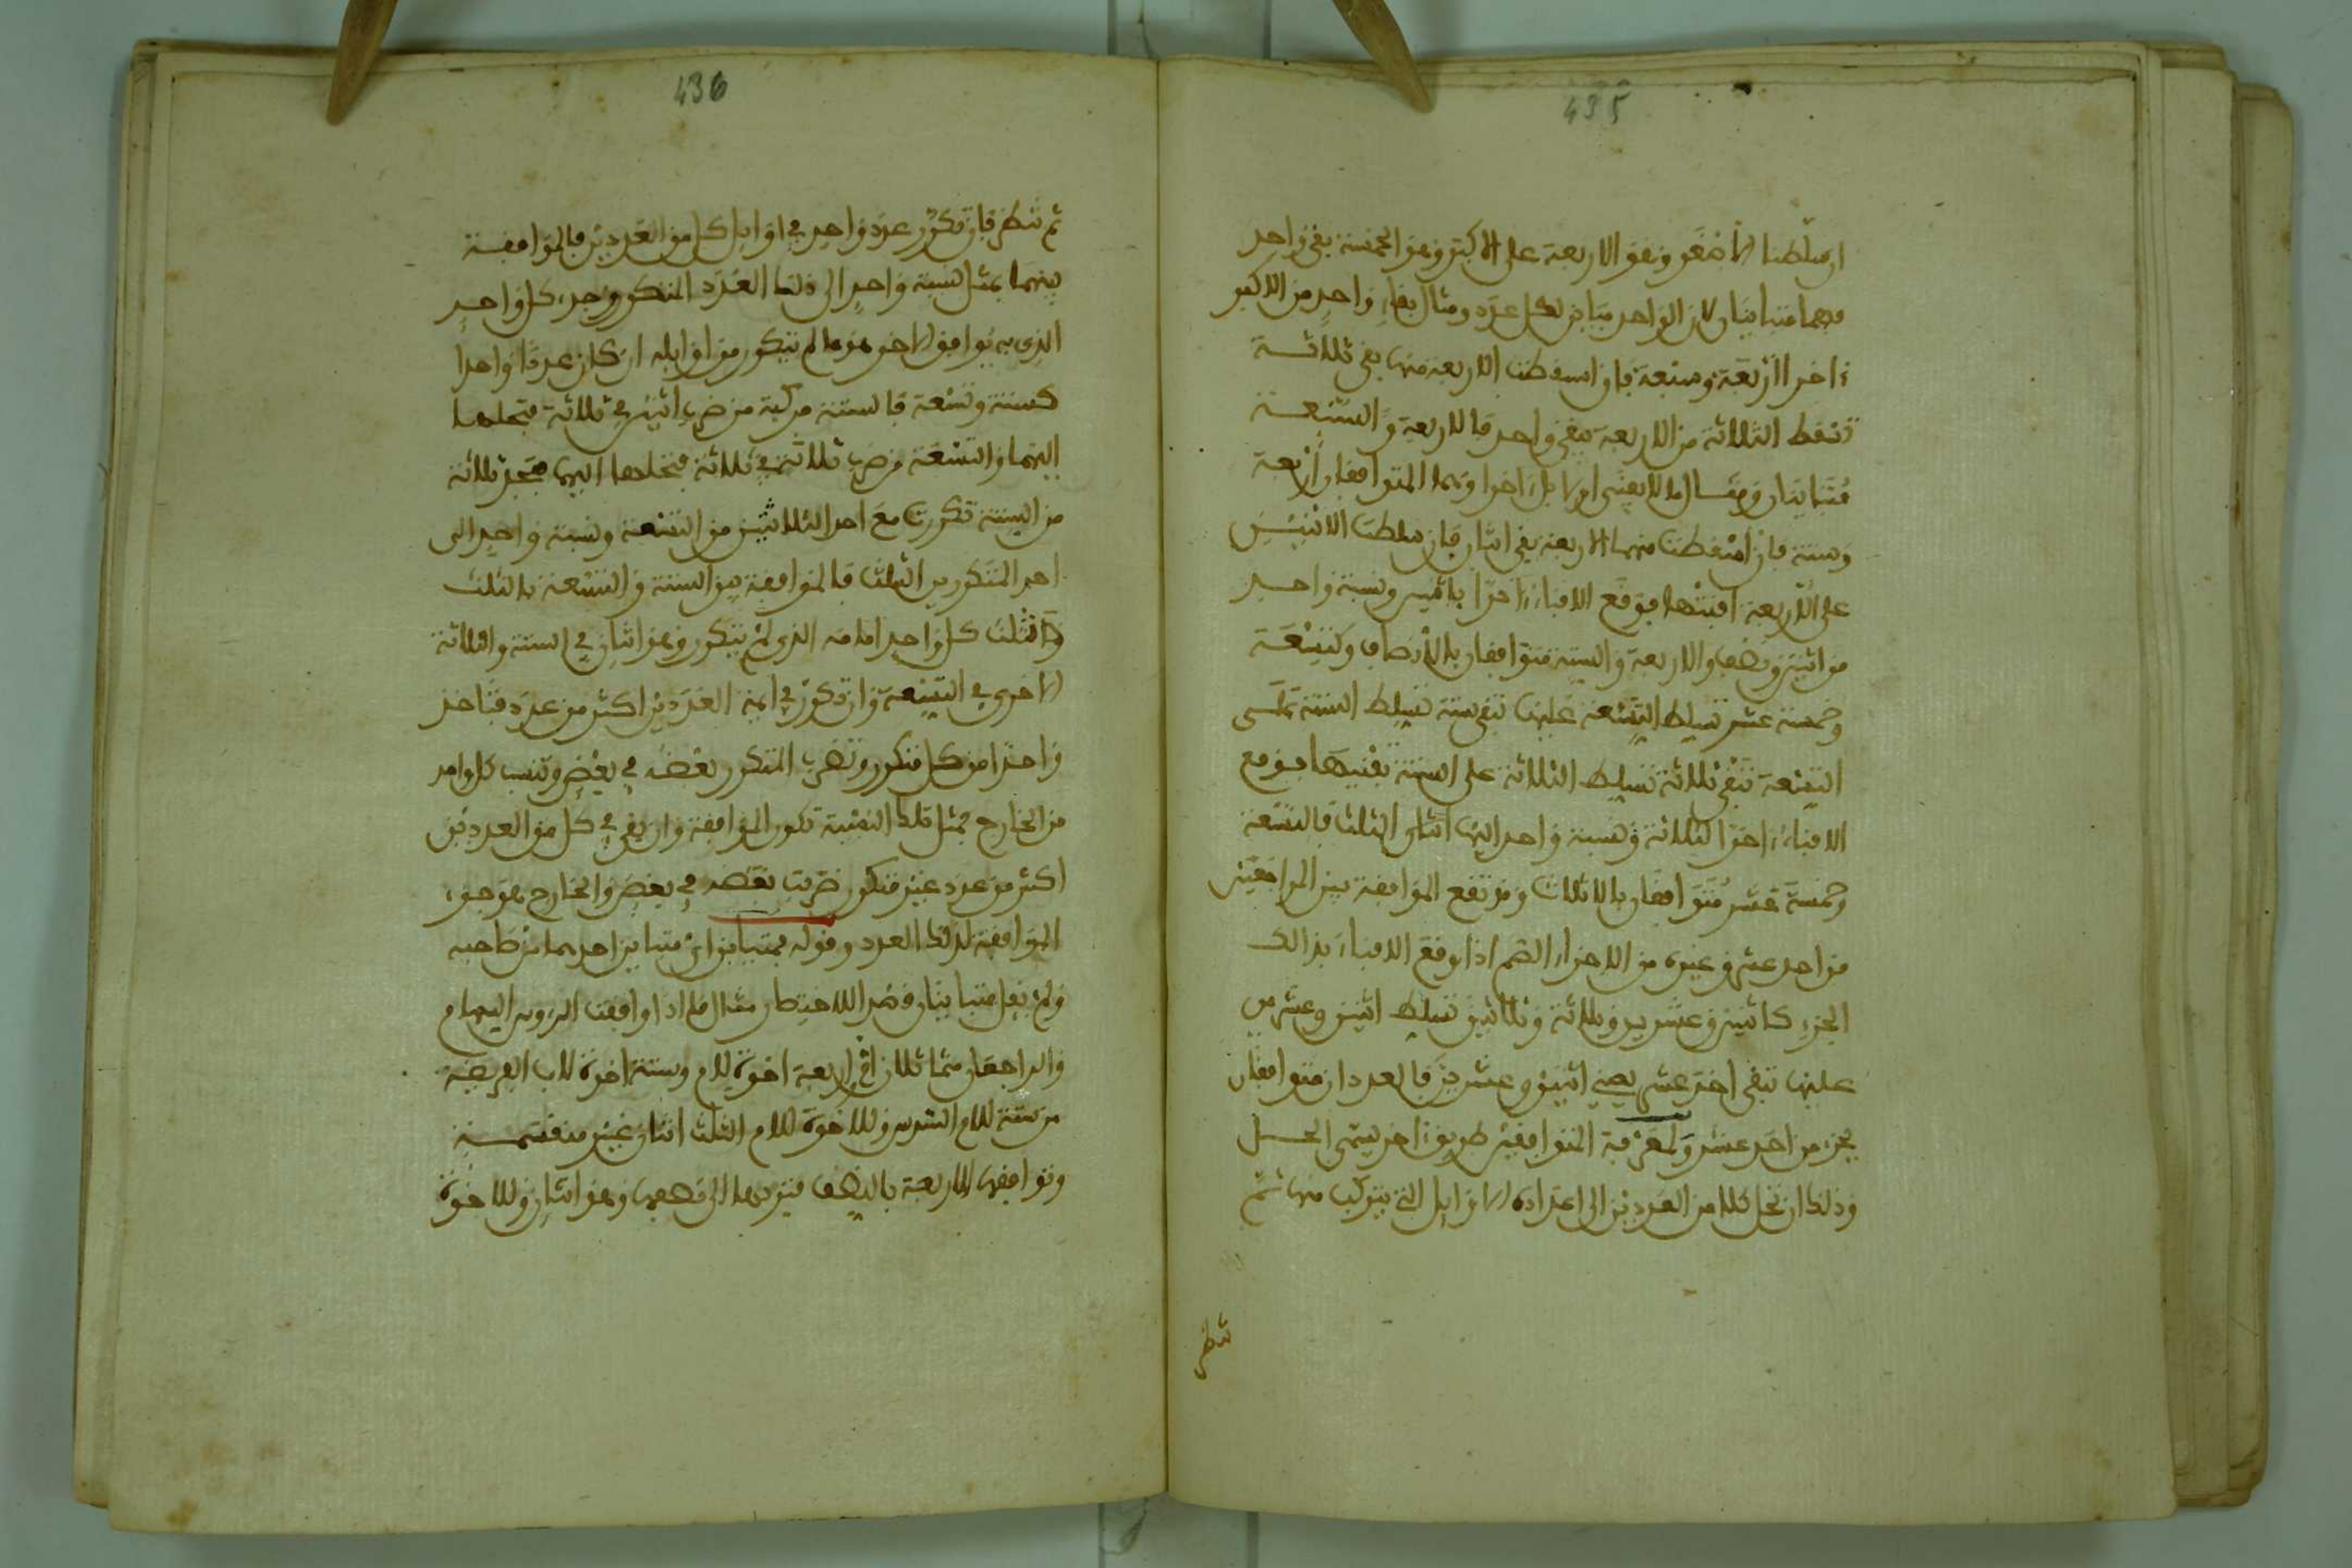 435
ان سلطنا الأصغر وهو الاربعة على الاكبر وهو الخمسة بقي واحد
فهما متباينان لان الواحد مباين لكل عدد ومثال بقاء واحد من الاكبر
ءاخرا أربعة وسبعة فان اسقطت الاربعة منها بقي ثلاثة
تسقط الثلاثة من الاربعة يبقى واحد فالاربعة والسبعة
متباينان ومثال ما لا يفنى اولا بل ءاخرا وهما المتوافقان أربعة
وستة فان اسقطت منها الاربعة بقي اثنان فان سلطت الاثنين
على الاربعة افنتها فوقع الافناء ءاخرا باثنين ونسبة واحد
من اثنين نصف والاربعة والستة متوافقان بالأنصاف وكتسعة
وخمسة عشر تسلط التسعة عليها تبقى ستة تسلط الستة على
التسعة تبقى ثلاثة تسلط الثلاثة على الستة تفنيها فوقع
الافناء ءاخرا لثلاثة ونسبة واحد اليها الثلث فالتسعة
وخمسة عشر متوافقان بالاثلاث ومرتفع الموافقة بين الراجعين
من احد عشر وغيره من الاجزاء الصم اذا وقع الافناء بذالك
الجزء كاثنين وعشرين وثلاثة وثلاثين تسلط اثنين وعشرين
عليها تبقى احد عشر يفني اثنين وعشرين فالعددان متوافقان
بجزء من احد عشر ولمعرفة المتوافقين طريق ءاخر يسمى الحل
وذلك ان تحل كلا من العددين الى اعداده الاوايل التي يتركب منها ثم
تنظر
436
ثم تنظر فان تكرر عدد واحد في اوايل كل من العددين فالموافقة
بينهما بمثل نسبة واحد الى ذلك العدد المتكرر وجزء كل واحد
الذي به يوافق الاخر هو ما لم يتكرر من اوايله ان كان عددا واحدا
كستة وتسعة فالستة مركبة من ضرب اثنين في ثلاثة فتحلها
اليهما والتسعة من ضرب ثلاثة في ثلاثة فتحلها اليها فتجد ثلاثة
من الستة تكررت مع احد الثلاثتين من التسعة ونسبة واحد الى
احد المتكررين الثلث فالموافقة بين الستة والتسعة بالثلث
وثلث كل واحد امامه الذي لم يتكرر وهو اثنان في الستة والثلاثة
الاخرى في التسعة وان تكرر في ايمة العددين اكثر من عدد فتاخذ
واحدا من كل متكرر وتضرب المتكرر بعضه في بعض وتنسب كل واحد
من الخارج فبمثل تلك النسبة تكون الموافقة وان بقي في كل من العددين
اكثر من عدد غير متكرر ضربت بعضه في بعض والخارج هو جزء
الموافقة لذلك العدد وقوله فمتباين اي متباين احدهما من صاحبه
ولم يقل متباينان قصد الاختصار مثال ما اذا وافقت الرءوس السهام
والراجعان متماثلان ام واربعة اخوة للام وستة اخوة للاب الفريضة
من ستة للام السدس وللاخوة للام الثلث اثنان غير منقسمة
وتوافقها الاربعة بالنصف فتردها الى نصفها وهو اثنان وللاخوة